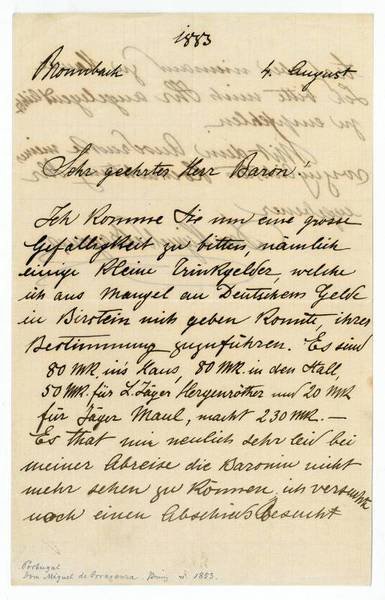 1883
Bronnbach 4. August
Sehr geehrter Herr Baron!
Ich komme Sie um eine grosse
Gefälligkeit zu bitten, nämlich
einige kleine Trinkgelder, welche
ich aus Mangel an Deutschem Gelde
in Birstein nich geben konnte, ihrer
Bestimmung zuzuführen. Es sind
80 MK. in's Haus, 80 MK. in den Stall
50 MK. für L. Jäger Hergenröther und 20 MK
für Jäger Maul, macht 230 MK. —
Es that mir neulich sehr leid bei
meiner Abreise die Baronin nicht
mehr sehen zu können, ich versuchte
noch einen Abschieds Besucht
Portugal
Dom Miguel de Braganza. 1883.